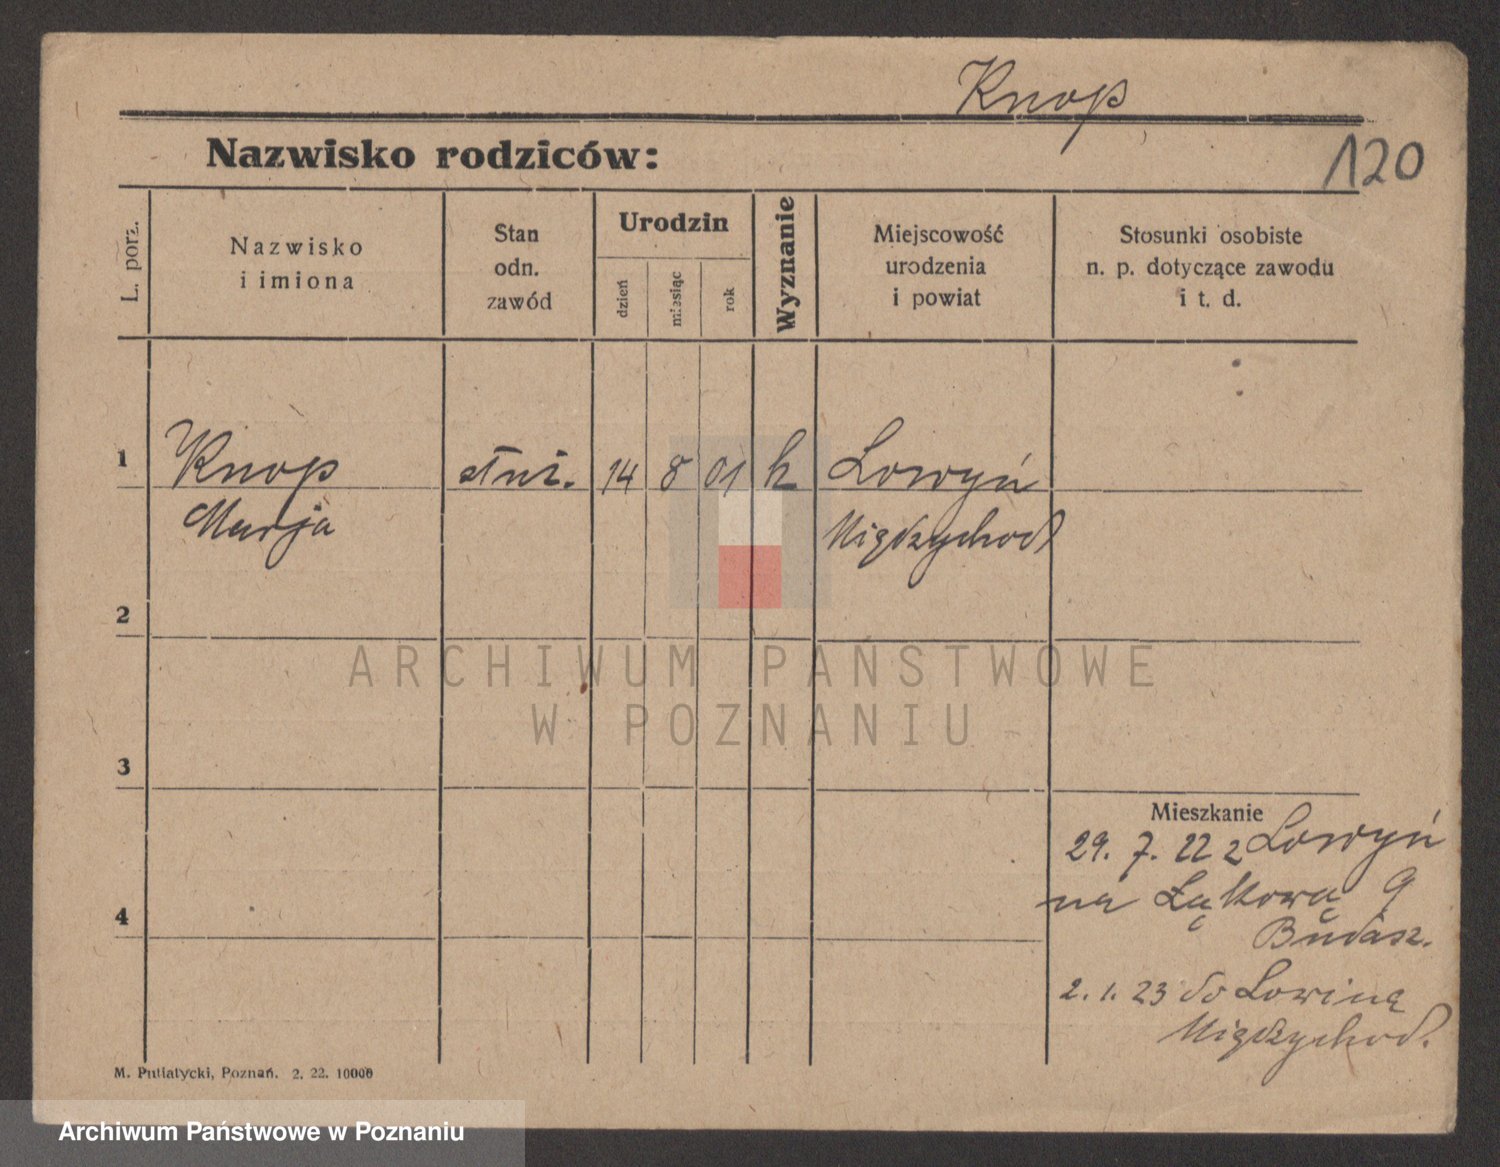 Knop
Nazwisko rodziców:
120
L. porz.
Nazwisko
i imiona
Stan
odn.
zawód
Urodzin
dzień
miesiąc
rok
Wyznanie
Miejscowość
urodzenia
i powiat
Stosunki osobiste
n. p. dotyczące zawodu
i t. d.
1
Knop
Marja
służ.
14 8 01 k
Lowyń
Międzychod
2
ARCHIWUM PAŃSTWOWE
W POZNANIU
3
Mieszkanie
29. 7. 22 z Lowyń
na Łąkową 9
4
2. 1. 23 do
Międzychod.
M. Putiatycki, Poznań. 2. 22. 10000
Archiwum Państwowe w Poznaniu